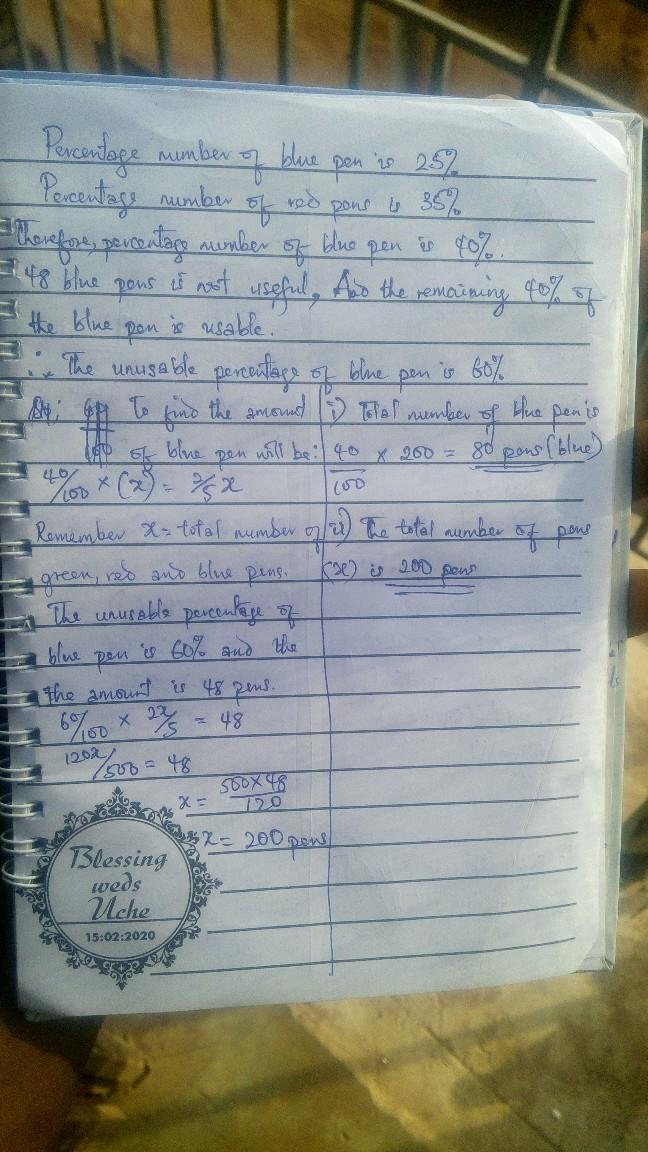 Percentage number of blue pen is 25%
Percentage number of red pens is 35%
Therefore, percentage number of blue pen is 40%.
48 blue pens is not useful, And the remaining 40% of
the blue pen is usable.
∴ The unusable percentage of blue pen is 60%
To find the amound
of blue pen will be:
40/100 × (x) = 2/5 x
Remember x = total number of
green, red and blue pens.
The unusable percentage of
blue pen is 60% and the
the amount is 48 pens.
60/100 × 2x/5 = 48
120x/500 = 48
x = 500×48/120
x = 200 pens
i) Total number of blue pen is
40/100 × 200 = 80 pens (blue)
ii) The total number of pens
(x) is 200 pens
Blessing
weds
Uche
15:02:2020